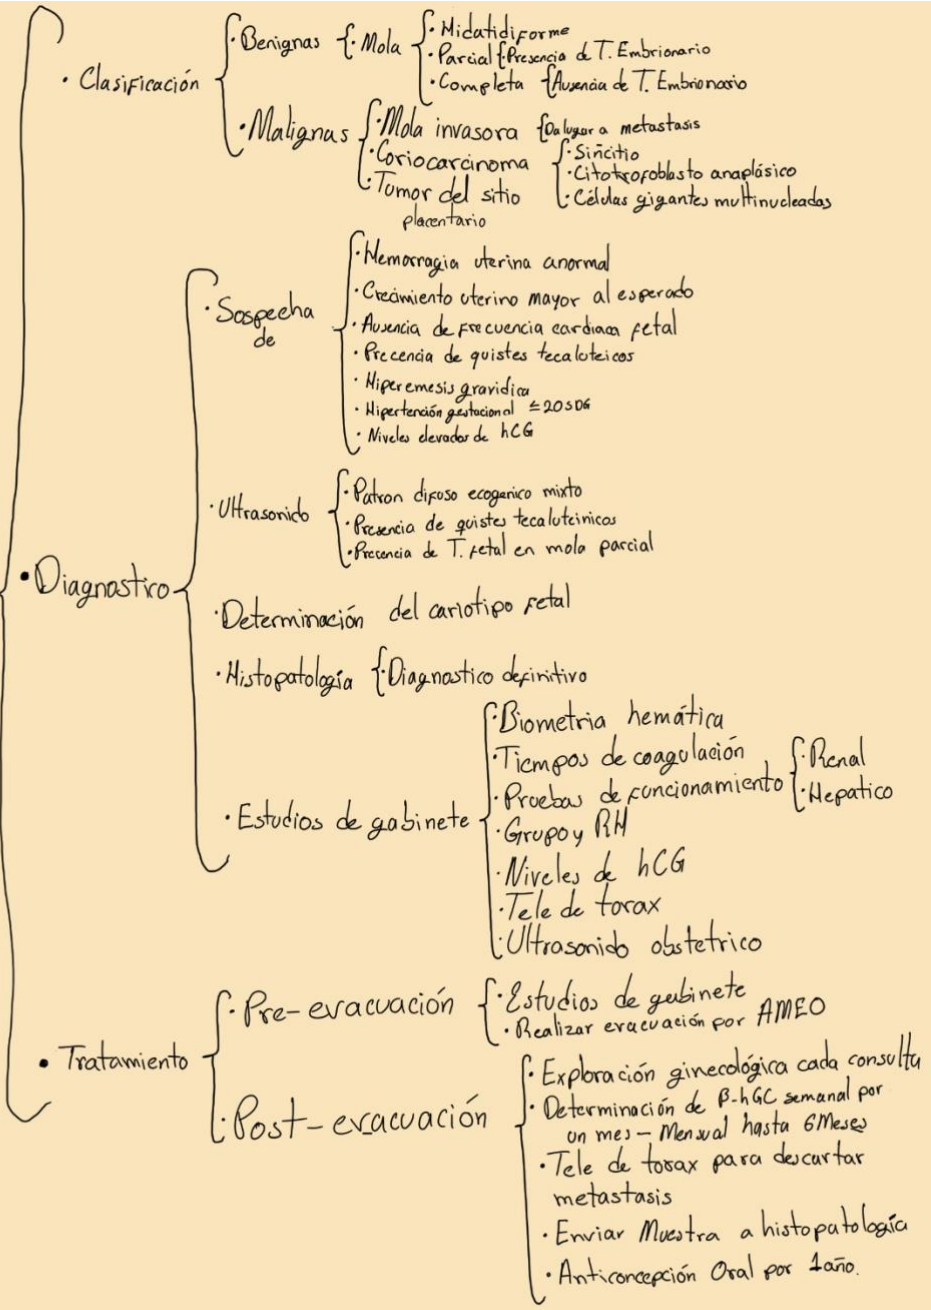 · Clasificación
· Benignas {· Mola
· Midatidiforme
· Parcial {· Presencia de T. Embrionario
· Completa { Ausencia de T. Embrionario
· Malignas
· Mola invasora { Da lugar a metastasis
· Coriocarcinoma
· Sincitio
· Citotrofoblasto anaplásico
· Células gigantes multinucleadas
· Tumor del sitio
placentario
• Diagnostico
· Sospecha
de
· Hemorragia uterina anormal
· Crecimiento uterino mayor al esperado
· Ausencia de frecuencia cardiaca fetal
· Precencia de quistes tecaluteicos
· Hiperemesis gravidica
· Hipertención gestacional ≤20SDG
· Niveles elevados de hCG
· Ultrasonido
· Patron difuso ecogenico mixto
· Presencia de quistes tecaluteinicos
· Precencia de T. fetal en mola parcial
· Determinación del cariotipo fetal
· Histopatología {· Diagnostico definitivo
· Estudios de gabinete
· Biometria hemática
· Tiempos de coagulación
· Pruebas de funcionamiento
· Renal
· Hepatico
· Grupo y RH
· Niveles de hCG
· Tele de torax
· Ultrasonido obstetrico
• Tratamiento
· Pre-evacuación
· Estudios de gabinete
· Realizar evacuación por AMEO
· Post-evacuación
· Exploración ginecológica cada consulta
· Determinación de β-hGC semanal por
un mes – Mensual hasta 6 Meses
· Tele de torax para descartar
metastasis
· Enviar Muestra a histopatología
· Anticoncepción Oral por 1 año.